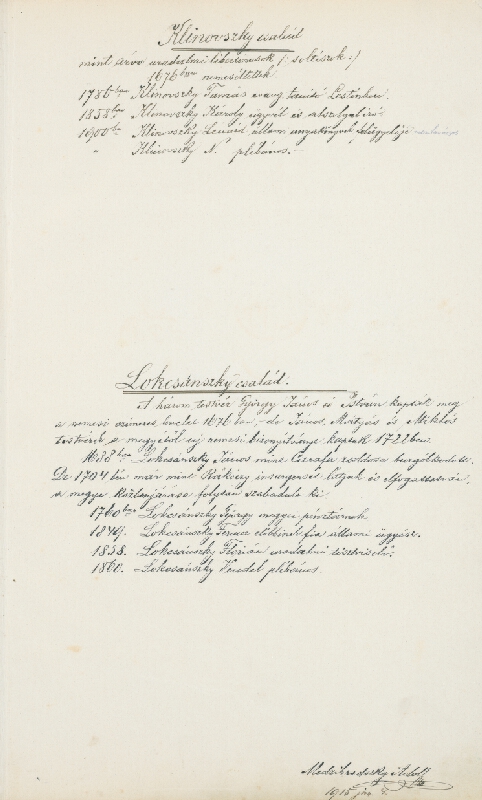 Klinovszky család
mint árva uradalmi libertinusok /: soltészok :/
1676ban nemesíttettek.
1786ban Klinovszky Tamás evang. tanító Cserinben.
1858ban Klinovszky Károly ügyvéd és alszolgabíró.
1900ba Klinovszky Lénárd, állam anyakönyvek
„ Klinovszky N. plébános.-
Lokcsánszky család.
A három testvér György János és István kaptak meg
a nemesi czímeres levelet 1676 ba - de János, Mátyás és Miklós
testvérek a megyétől új nemesi bizonyítványt kaptak 1722ben.
1688ban Lokcsánszky János mint Caraffa zsoldosa
De 1704 bn már mint Rákóczy insurgensét látjuk és elfogattatván,
a megye közbenjárása folytán szabadula ki.
1760ban Lokcsánszky György megyei pénztárnok
1849. Lokcsánszky Ferencz előbbinek fia állami ügyész.
1858. Lokcsánszky Flórián uradalmi tisztviselő.
1860. - Lokcsánszky Vendel plébános.
1915 jun